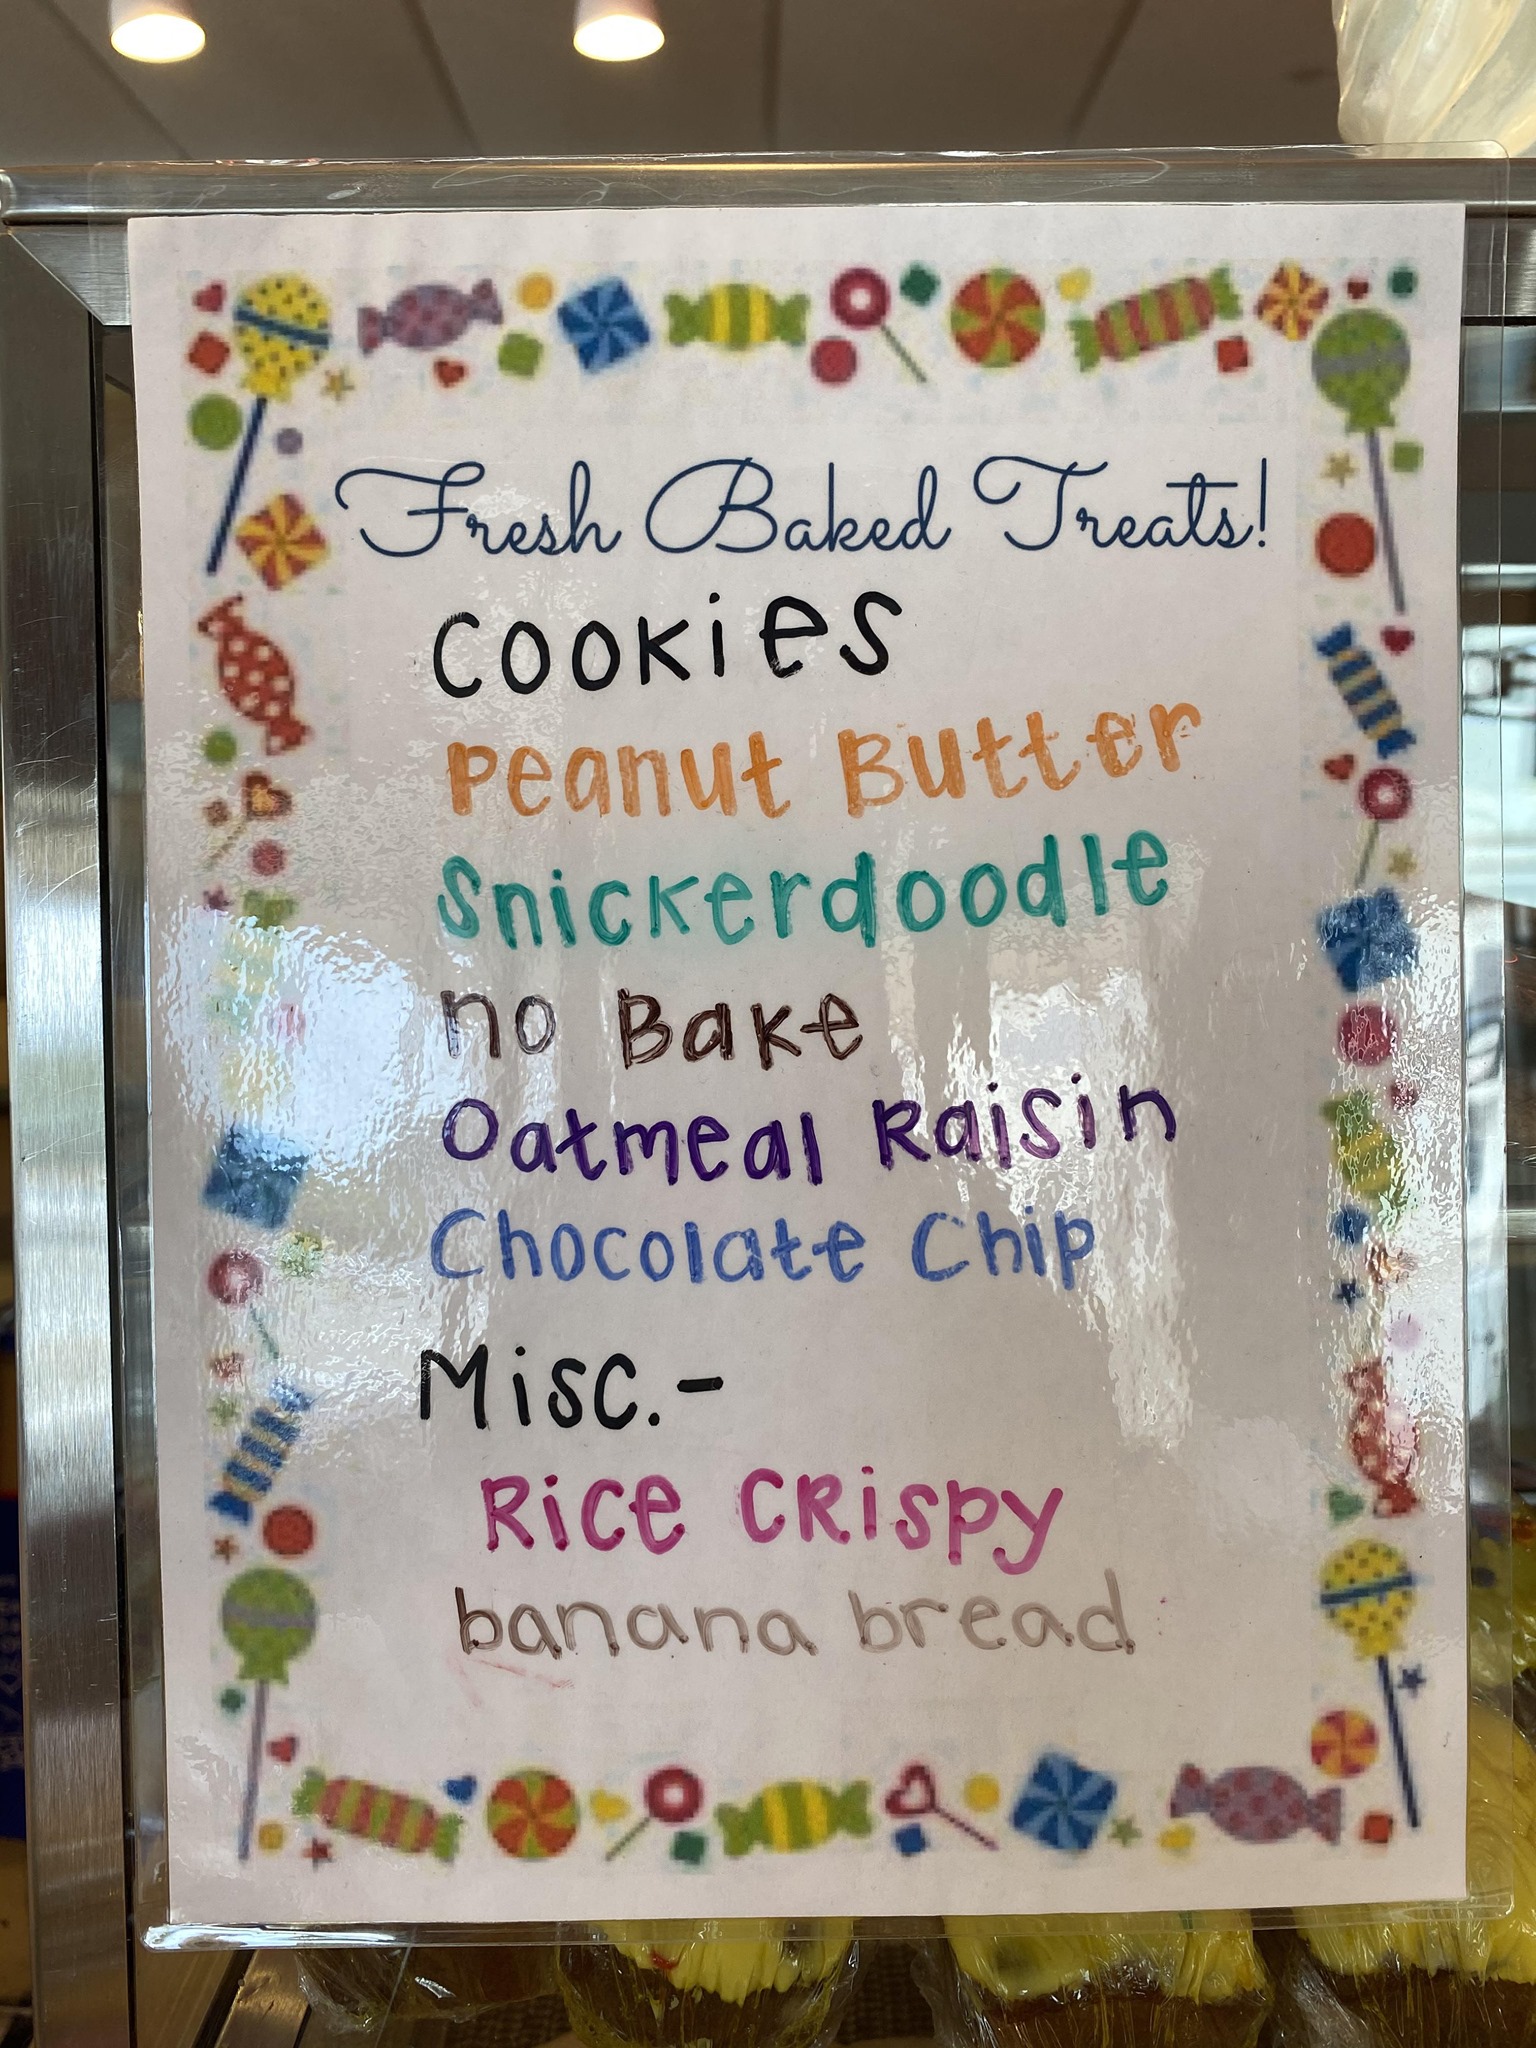 Fresh Baked Treats!
Cookies
Peanut Butter
Snickerdoodle
no Bake
Oatmeal Raisin
Chocolate Chip
Misc.-
Rice CRispy
banana bread